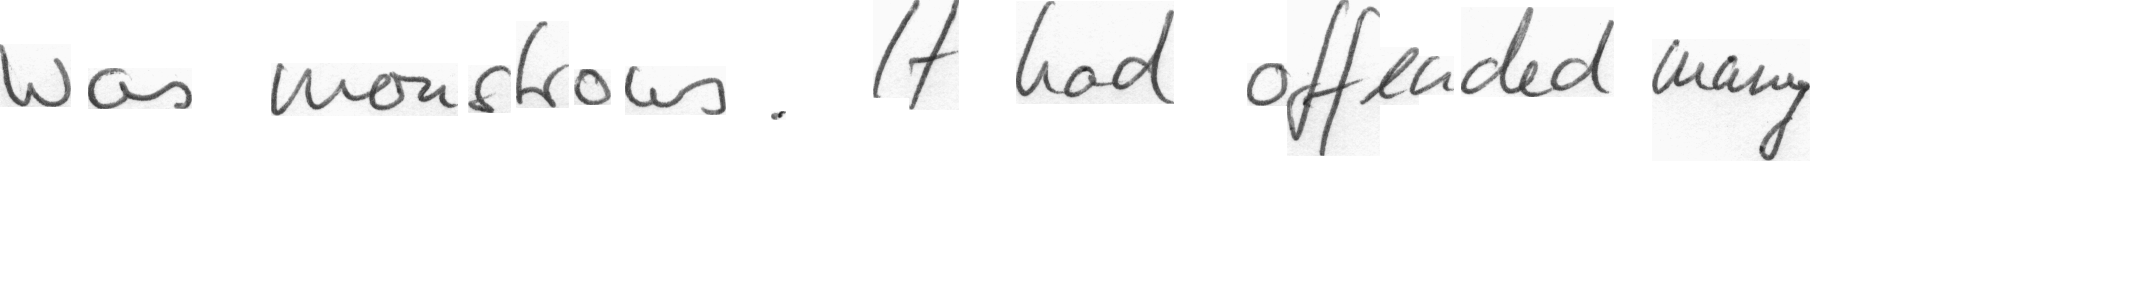 was monstrous. It had offended many